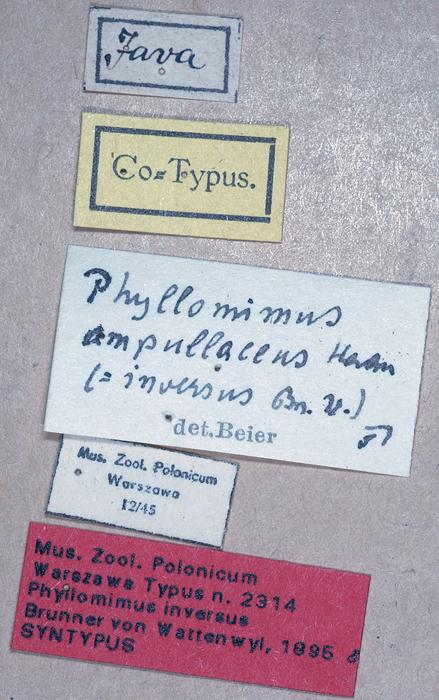 Java
Co=Typus.
Phyllomimus
ampullaceus Haan
(= inversus Bn. v.)
det. Beier
57
Mus. Zool. Polonicum
Warszawa
12/45
Mus. Zool. Polonicum
Warszawa Typus n. 2314
Phyllomimus inversus
Brunner von Wattenwyl, 1895 ♂
SYNTYPUS